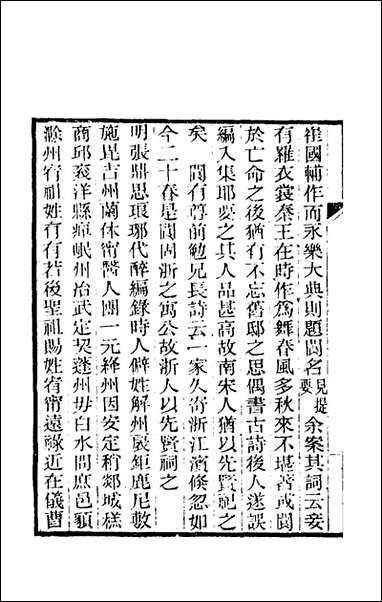 崔國輔作而永樂大典則題閻名見提要余案其詞云妾
有羅衣裳秦王在時作爲舞春風多秋來不堪著或閻
於亡命之後猶有不忘舊邸之思偶書古詩後人遂誤
編入集耶要之其人品甚高故南宋人猶以先賢祀之
矣　閻有尊前勉兄長詩云一家久寄浙江濱倏忽如
今二十春是閻固浙之寓公故浙人以先賢祠之
明張鼎思琅琊代醉編錄時人僻姓解州裴鉅鹿尼敷
施毘吉州蘭休甯醫人團一元絳州因安定稍郯城糕
商邱袤洋縣瘴岷州冶武定契蓬州毋白水問庶邑頟
滁州宥祖姓有有若後聖祖賜姓宥甯遠祿近在儀曹